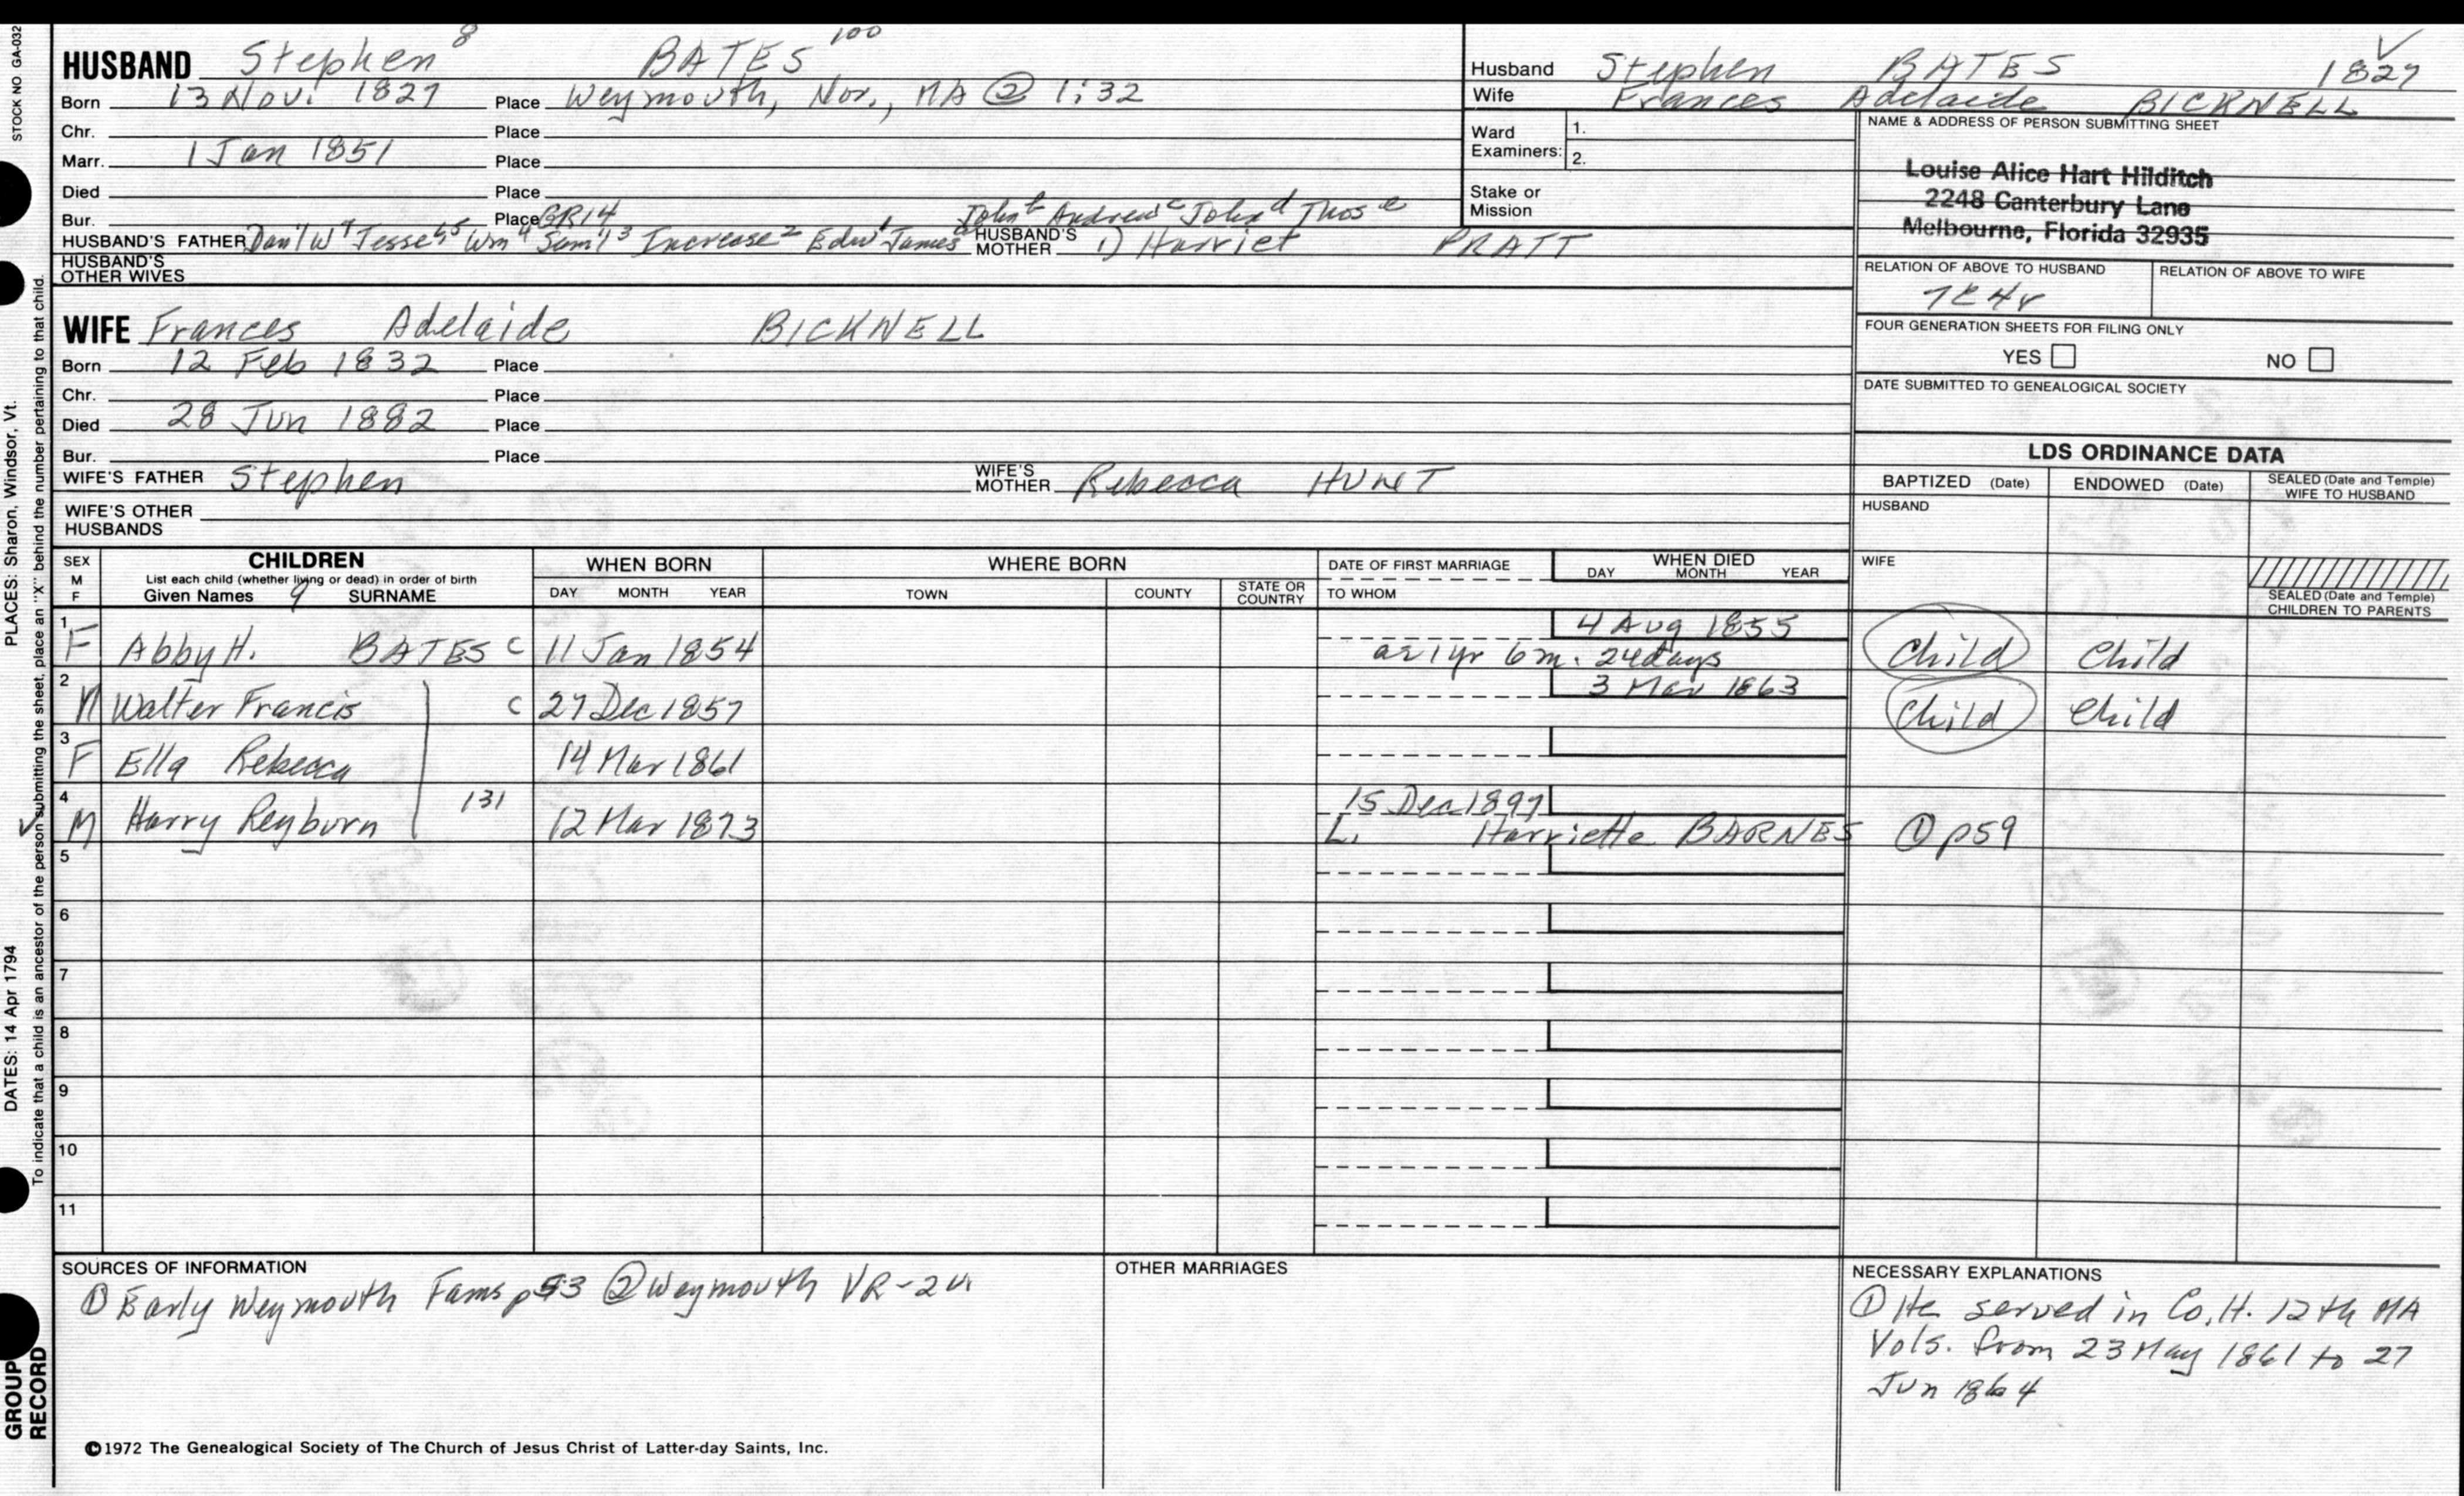 STOCK NO GA-032
PLACES: Sharon, Windsor, Vt.
DATES: 14 Apr 1794
To indicate that a child is an ancestor of the person submitting the sheet, place an "X" behind the number pertaining to that child.
GROUP
RECORD
HUSBAND Stephen 8 BATES 100
Born 13 Nov. 1827 Place Weymouth, Nor., MA @ 1:32
Chr. Place
Marr. 1 Jan 1851 Place
Died Place
Bur. Place BR14
John b Andrew c John d Thos e
HUSBAND'S FATHER Dan'l W 7 Jesse 6,5 Wm 4 Sam'l 3 Increase 2 Edw 1 James a HUSBAND'S MOTHER 1) Harriet PRATT
HUSBAND'S OTHER WIVES
WIFE Frances Adelaide BICKNELL
Born 12 Feb 1832 Place
Chr. Place
Died 28 Jun 1882 Place
Bur. Place
WIFE'S FATHER Stephen WIFE'S MOTHER Rebecca HUNT
WIFE'S OTHER HUSBANDS
Husband Stephen BATES 1827
Wife Frances Adelaide BICKNELL
Ward Examiners: 1. 2.
Stake or Mission
NAME & ADDRESS OF PERSON SUBMITTING SHEET
Louise Alice Hart Hilditch
2248 Canterbury Lane
Melbourne, Florida 32935
RELATION OF ABOVE TO HUSBAND RELATION OF ABOVE TO WIFE
FOUR GENERATION SHEETS FOR FILING ONLY
YES NO
DATE SUBMITTED TO GENEALOGICAL SOCIETY
LDS ORDINANCE DATA
BAPTIZED (Date) ENDOWED (Date) SEALED (Date and Temple) WIFE TO HUSBAND
HUSBAND
WIFE
SEALED (Date and Temple) CHILDREN TO PARENTS
SEX M F CHILDREN WHEN BORN WHERE BORN DATE OF FIRST MARRIAGE WHEN DIED
List each child (whether living or dead) in order of birth
Given Names SURNAME DAY MONTH YEAR TOWN COUNTY STATE OR COUNTRY TO WHOM DAY MONTH YEAR
1 F Abby H. BATES C 11 Jan 1854 4 Aug 1855
ae 1 yr 6 m. 24 days Child Child
2 M Walter Francis C 27 Dec 1857 3 Mar 1863 Child Child
3 F Ella Rebecca 14 Mar 1861
4 M Harry Reyburn 131 12 Mar 1873 15 Dec 1897
L. Harriette BARNES ① p59
5
6
7
8
9
10
11
SOURCES OF INFORMATION
① Early Weymouth Fams p53 ② Weymouth VR-2v.
OTHER MARRIAGES
NECESSARY EXPLANATIONS
① He served in Co. H. 12th MA
Vols. from 23 May 1861 to 27
Jun 1864
©1972 The Genealogical Society of The Church of Jesus Christ of Latter-day Saints, Inc.